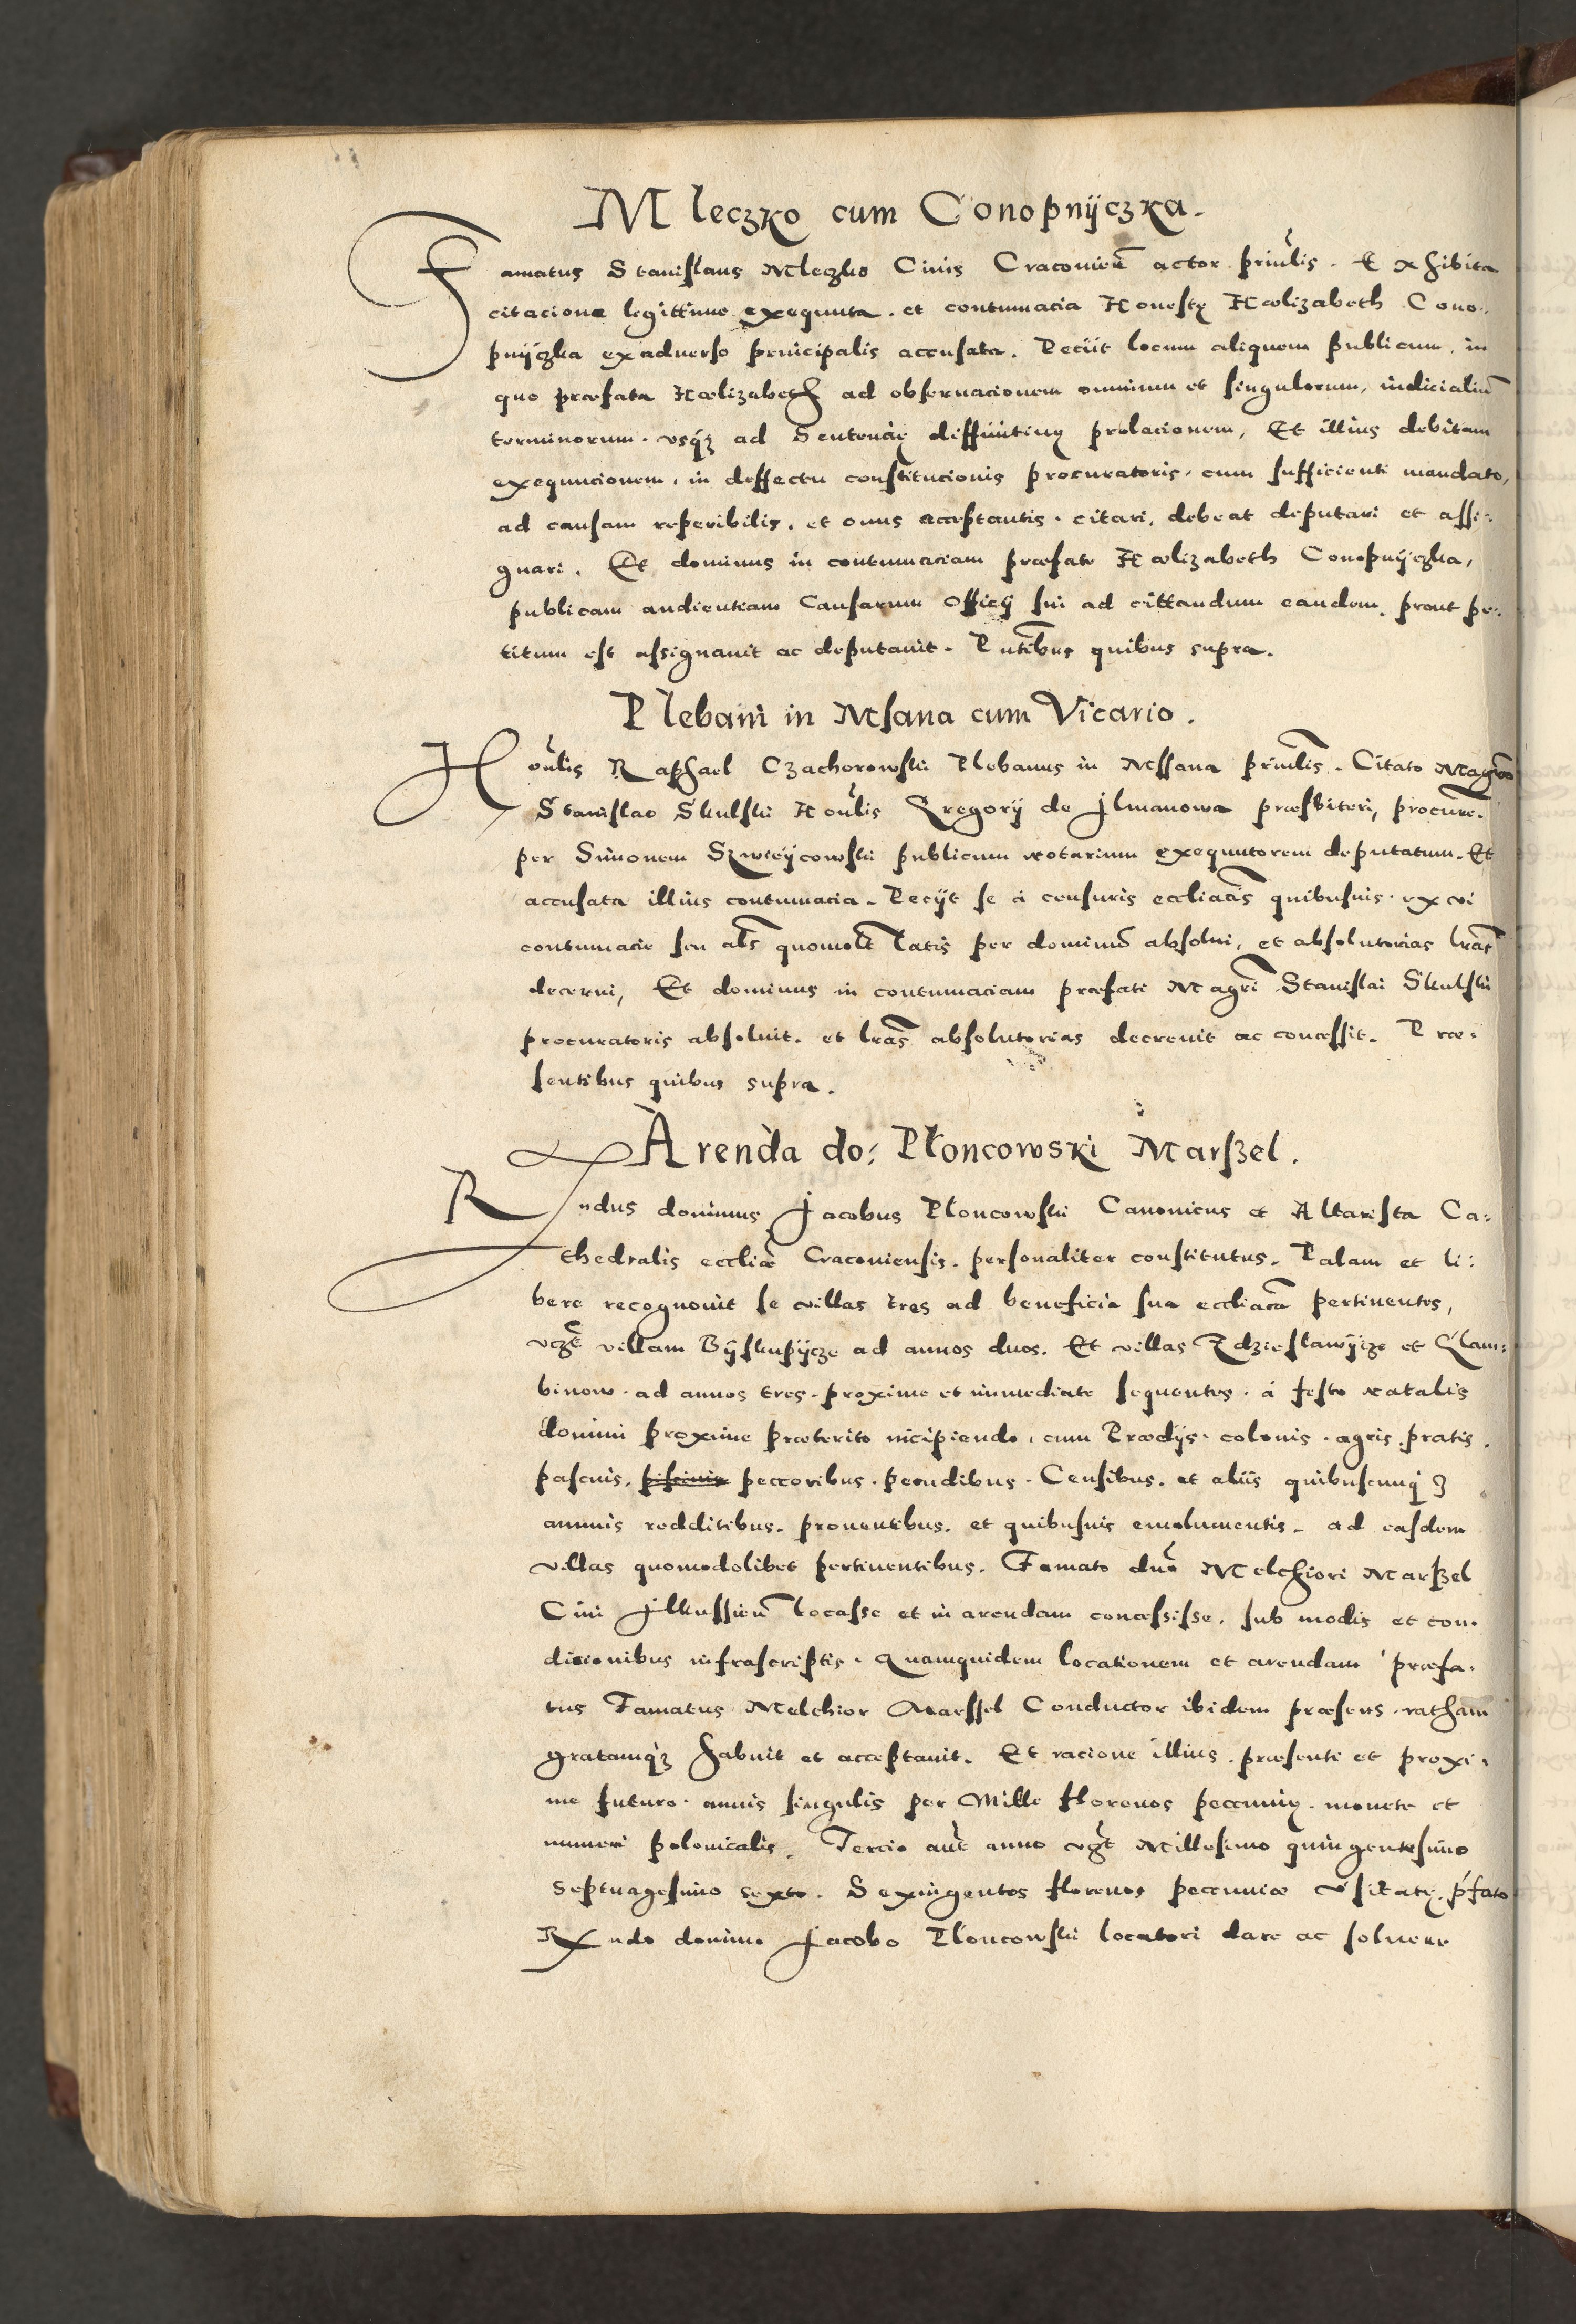 Mleczko cum Conopnÿczka.
Famatus Stanislaus Mleczko Civis Cracovien̄ actor prīnlis. Exhibita
citacione legittime exequuta. et contumacia Honestę Hælizabeth Cono-
pnÿczka ex adverso principalis accusata. Petiit locum aliquem publicum, in
quo præfata Hælizabeth ad observacionem omnium et singulorum, iudicialiū
terminorum. vsq̨ ad Sentencię diffinitivę prolacionem, Et illius debitam
exequucionem, in deffectu constitucionis procuratoris, cum sufficienti mandato,
ad causam reperibilis, et onus acceptantis. citari, debeat deputari et assi-
gnari. Et dominus in contumaciam præfate Hælizabeth Conopnÿczka,
publicam audientiam Causarum Officÿ sui ad cittandum eandem, prout pe-
titum est assignavit ac deputavit. Pntibus quibus supra.
Plebani in Msana cum Vicario.
Honlis Raphael Czachorowski Plebanus in Mssana prīnlis. Citato Magrō
Stanislao Skulski Honlis Gregorÿ de Jlmanowa præsbiteri, procure.
per Simonem Szwieÿcowski publicum notarium exequutorem deputatum. Et
accusata illius contumacia. Petÿt se à censuris eccliacīs quibusvis. ex vi
contumacie seu als̄ quomolt latis per dominū absolvi, et absolutorias lrās
decerni, Et dominus in contumaciam præfati Magrī Stanislai Skulski
procuratoris absolvit. et lrās absolutorias decrevit ac concessit. Præ-
sentibus quibus supra.
Arenda do: Płoncowski Marszel.
Rndus dominus Jacobus Płoncowski Canonicus et Altarista Ca-
thedralis eccliæ Cracoviensis. personaliter constitutus. Palam et li-
bere recognovit se villas tres ad beneficia sua eccliacā pertinentes,
vczt villam Bÿskupÿcze ad annos duos. Et villas Zdziesławÿcze et Glam-
binow. ad annos tres. proxime et immediate sequentes. à festo natalis
domini proxime præterito incipiendo, cum Prædÿs. colonis. agris. pratis.
pascuis. piscinis peccoribus. pecudibus. Censibus. et aliis quibuscunq̨
annuis redditibus. proventibus. et quibusvis emolumentis. ad easdem
villas quomodolibet pertinentibus. Famato dnō Melchiori Marszel
Civi Jlkussien̄ locasse et in arendam concessisse. sub modis et con-
dicionibus infrascriptis. Quamquidem locationem et arendam præfa-
tus Famatus Melchior Marssel Conductor ibidem præsens. ratham
gratamq̨ habuit et acceptavit. Et racione illius. præsenti et proxi-
me futuro. annis singulis per Mille florenos peccunię. monete et
numeri polonicalis. Tercio aut̄ anno vczt Millesimo quingentesimo
septuagesimo sexto. Sexingentos florenos peccuniæ vsitatę. p̄fato
Rndo domino Jacobo Płoncowski locatori dare ac solvere